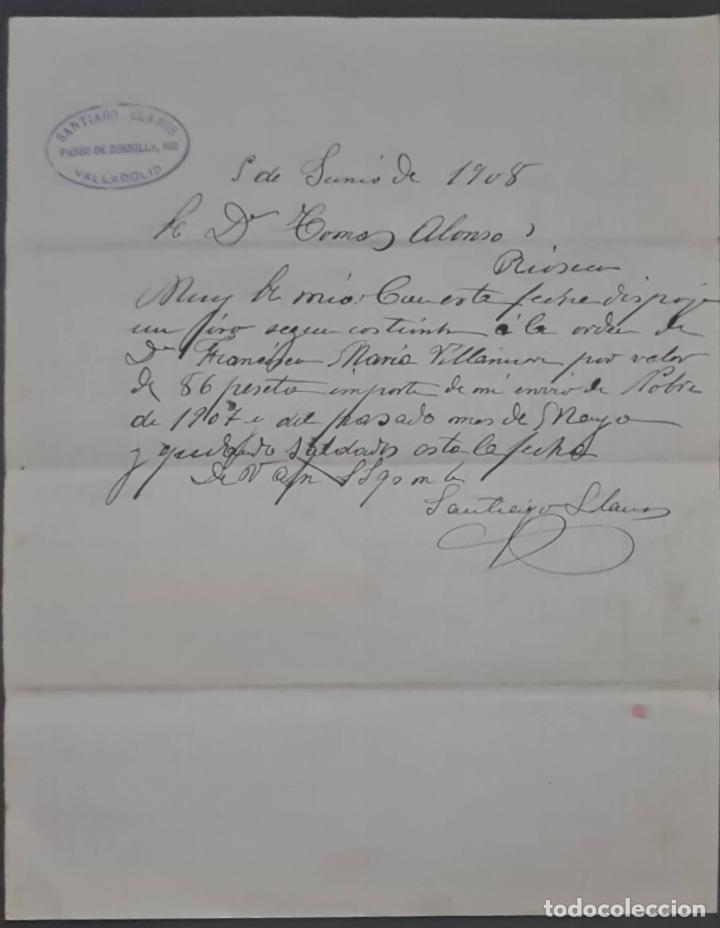 SANTIAGO LLANOS
PASEO DE ZORRILLA, 102
VALLADOLID
5 de Junio de 1908
Sr Dn Tomas Alonso
Rioseco
Muy Sr mio: Con esta fecha dispoje
un giro segun costumbre á la orden de
Dn Francisco Maria Villanueva por valor
de 86 pesetas importe de mi envio de
de 1907 y del pasado mes de Mayo
y quedando saldados asta la fecha
De V
Santiago Llanos
todocoleccion.net